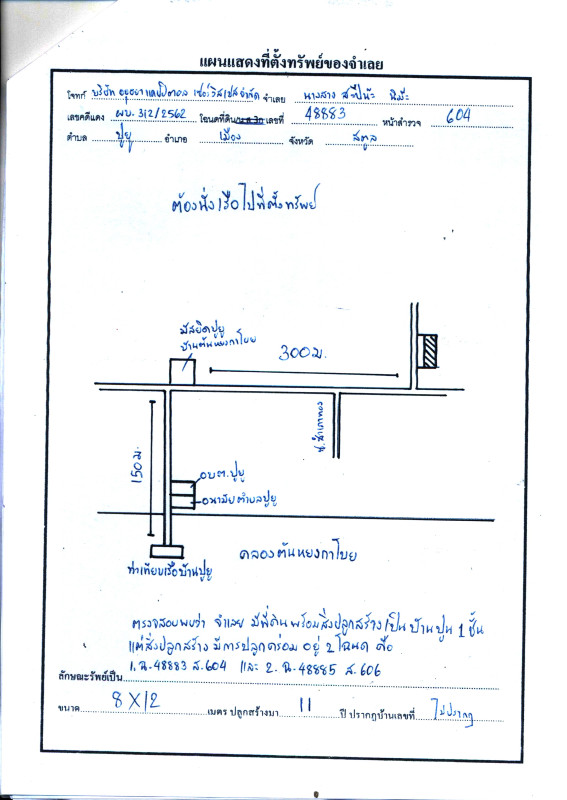 แผนแสดงที่ตั้งทรัพย์ของจำเลย
โจทก์ บริษัท อยุธยา แคปปิตอล เซอร์วิสเซส จำกัด จำเลย นางสาว
เลขคดีแดง ผบ.312/2562 โฉนดที่ดิน เลขที่ 48883 หน้าสำรวจ 604
ตำบล ปูยู อำเภอ เมือง จังหวัด สตูล
ต้องนั่งเรือไปที่ตั้งทรัพย์
มัสยิดปูยู
บ้านตันหยงกาโบย
300 ม.
150 ม.
อบต.ปูยู
อนามัยตำบลปูยู
คลองตันหยงกาโบย
ท่าเทียบเรือบ้านปูยู
ตรวจสอบพบว่า จำเลย มีที่ดินพร้อมสิ่งปลูกสร้างเป็นบ้านปูน 1 ชั้น
แต่สิ่งปลูกสร้าง มีการปลูกคร่อม อยู่ 2 โฉนด คือ
1. ฉ.48883 ส.604 และ 2. ฉ.48885 ส.606
ลักษณะทรัพย์เป็น
ขนาด 8 X 12 เมตร ปลูกสร้างมา 11 ปี ปรากฏบ้านเลขที่ ไม่ปรากฏ